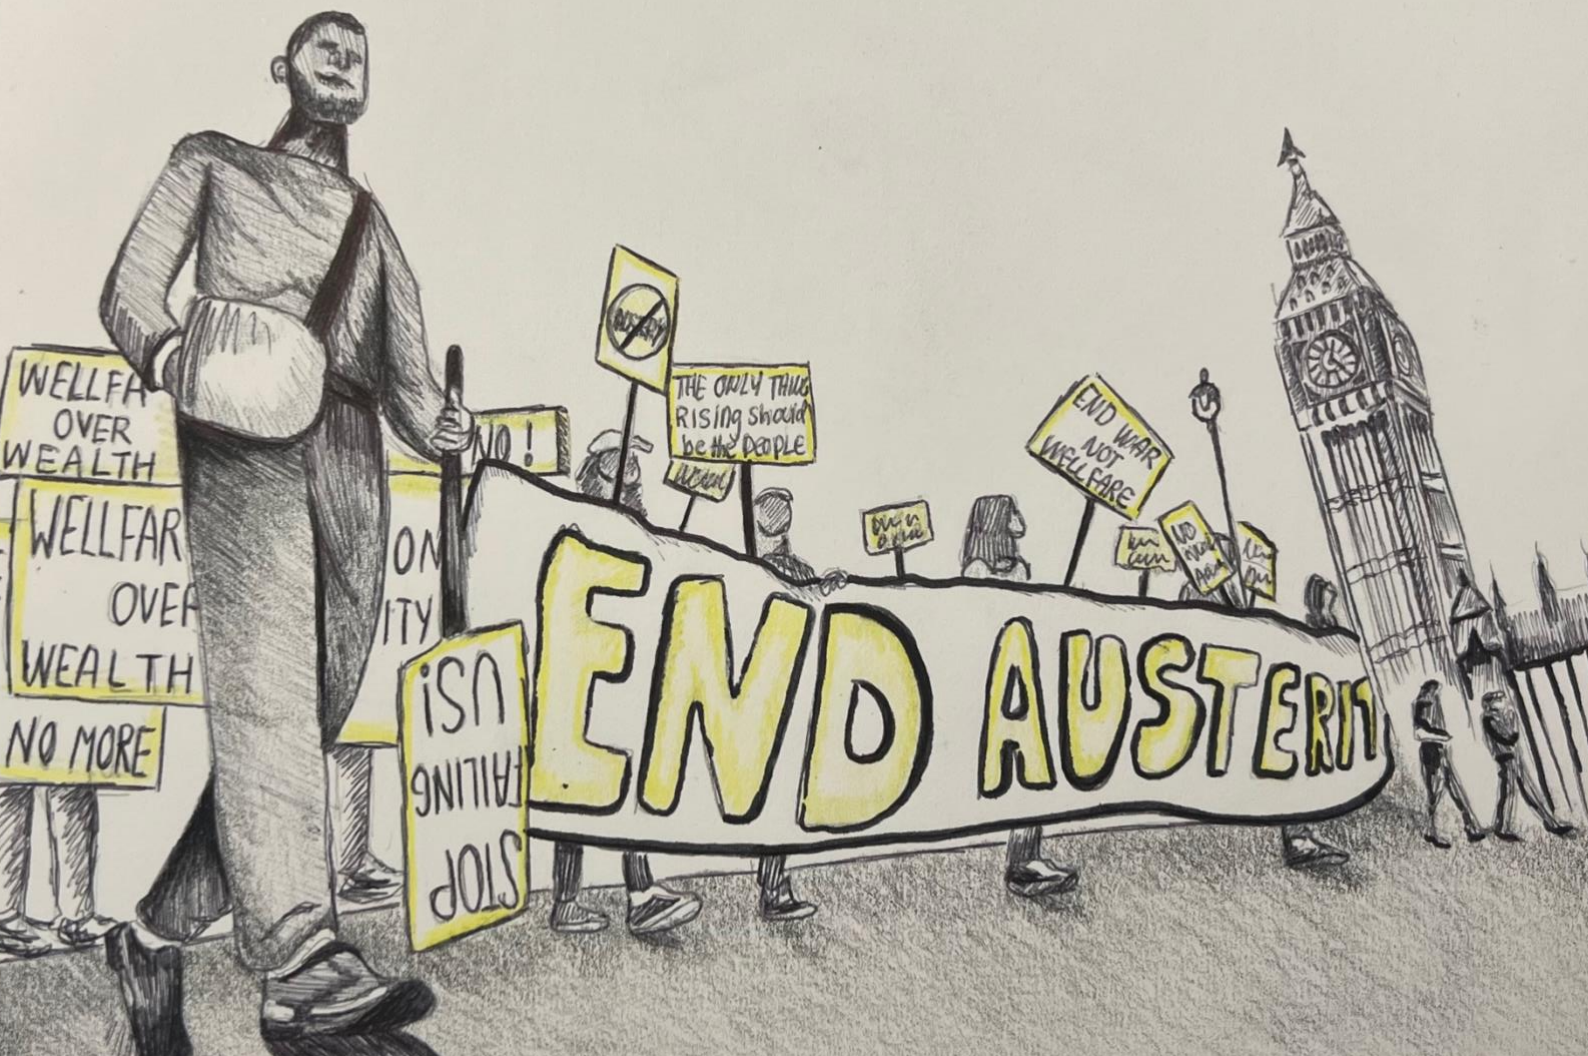 WELLFA
OVER
WEALTH
WELLFAR
OVER
WEALTH
NO MORE
NO!
ON
ITY
STOP
FAILING
US!
THE ONLY THING
RISING should
be the PEOPLE
END WAR
NOT
WELLFARE
NO
END AUSTERIT